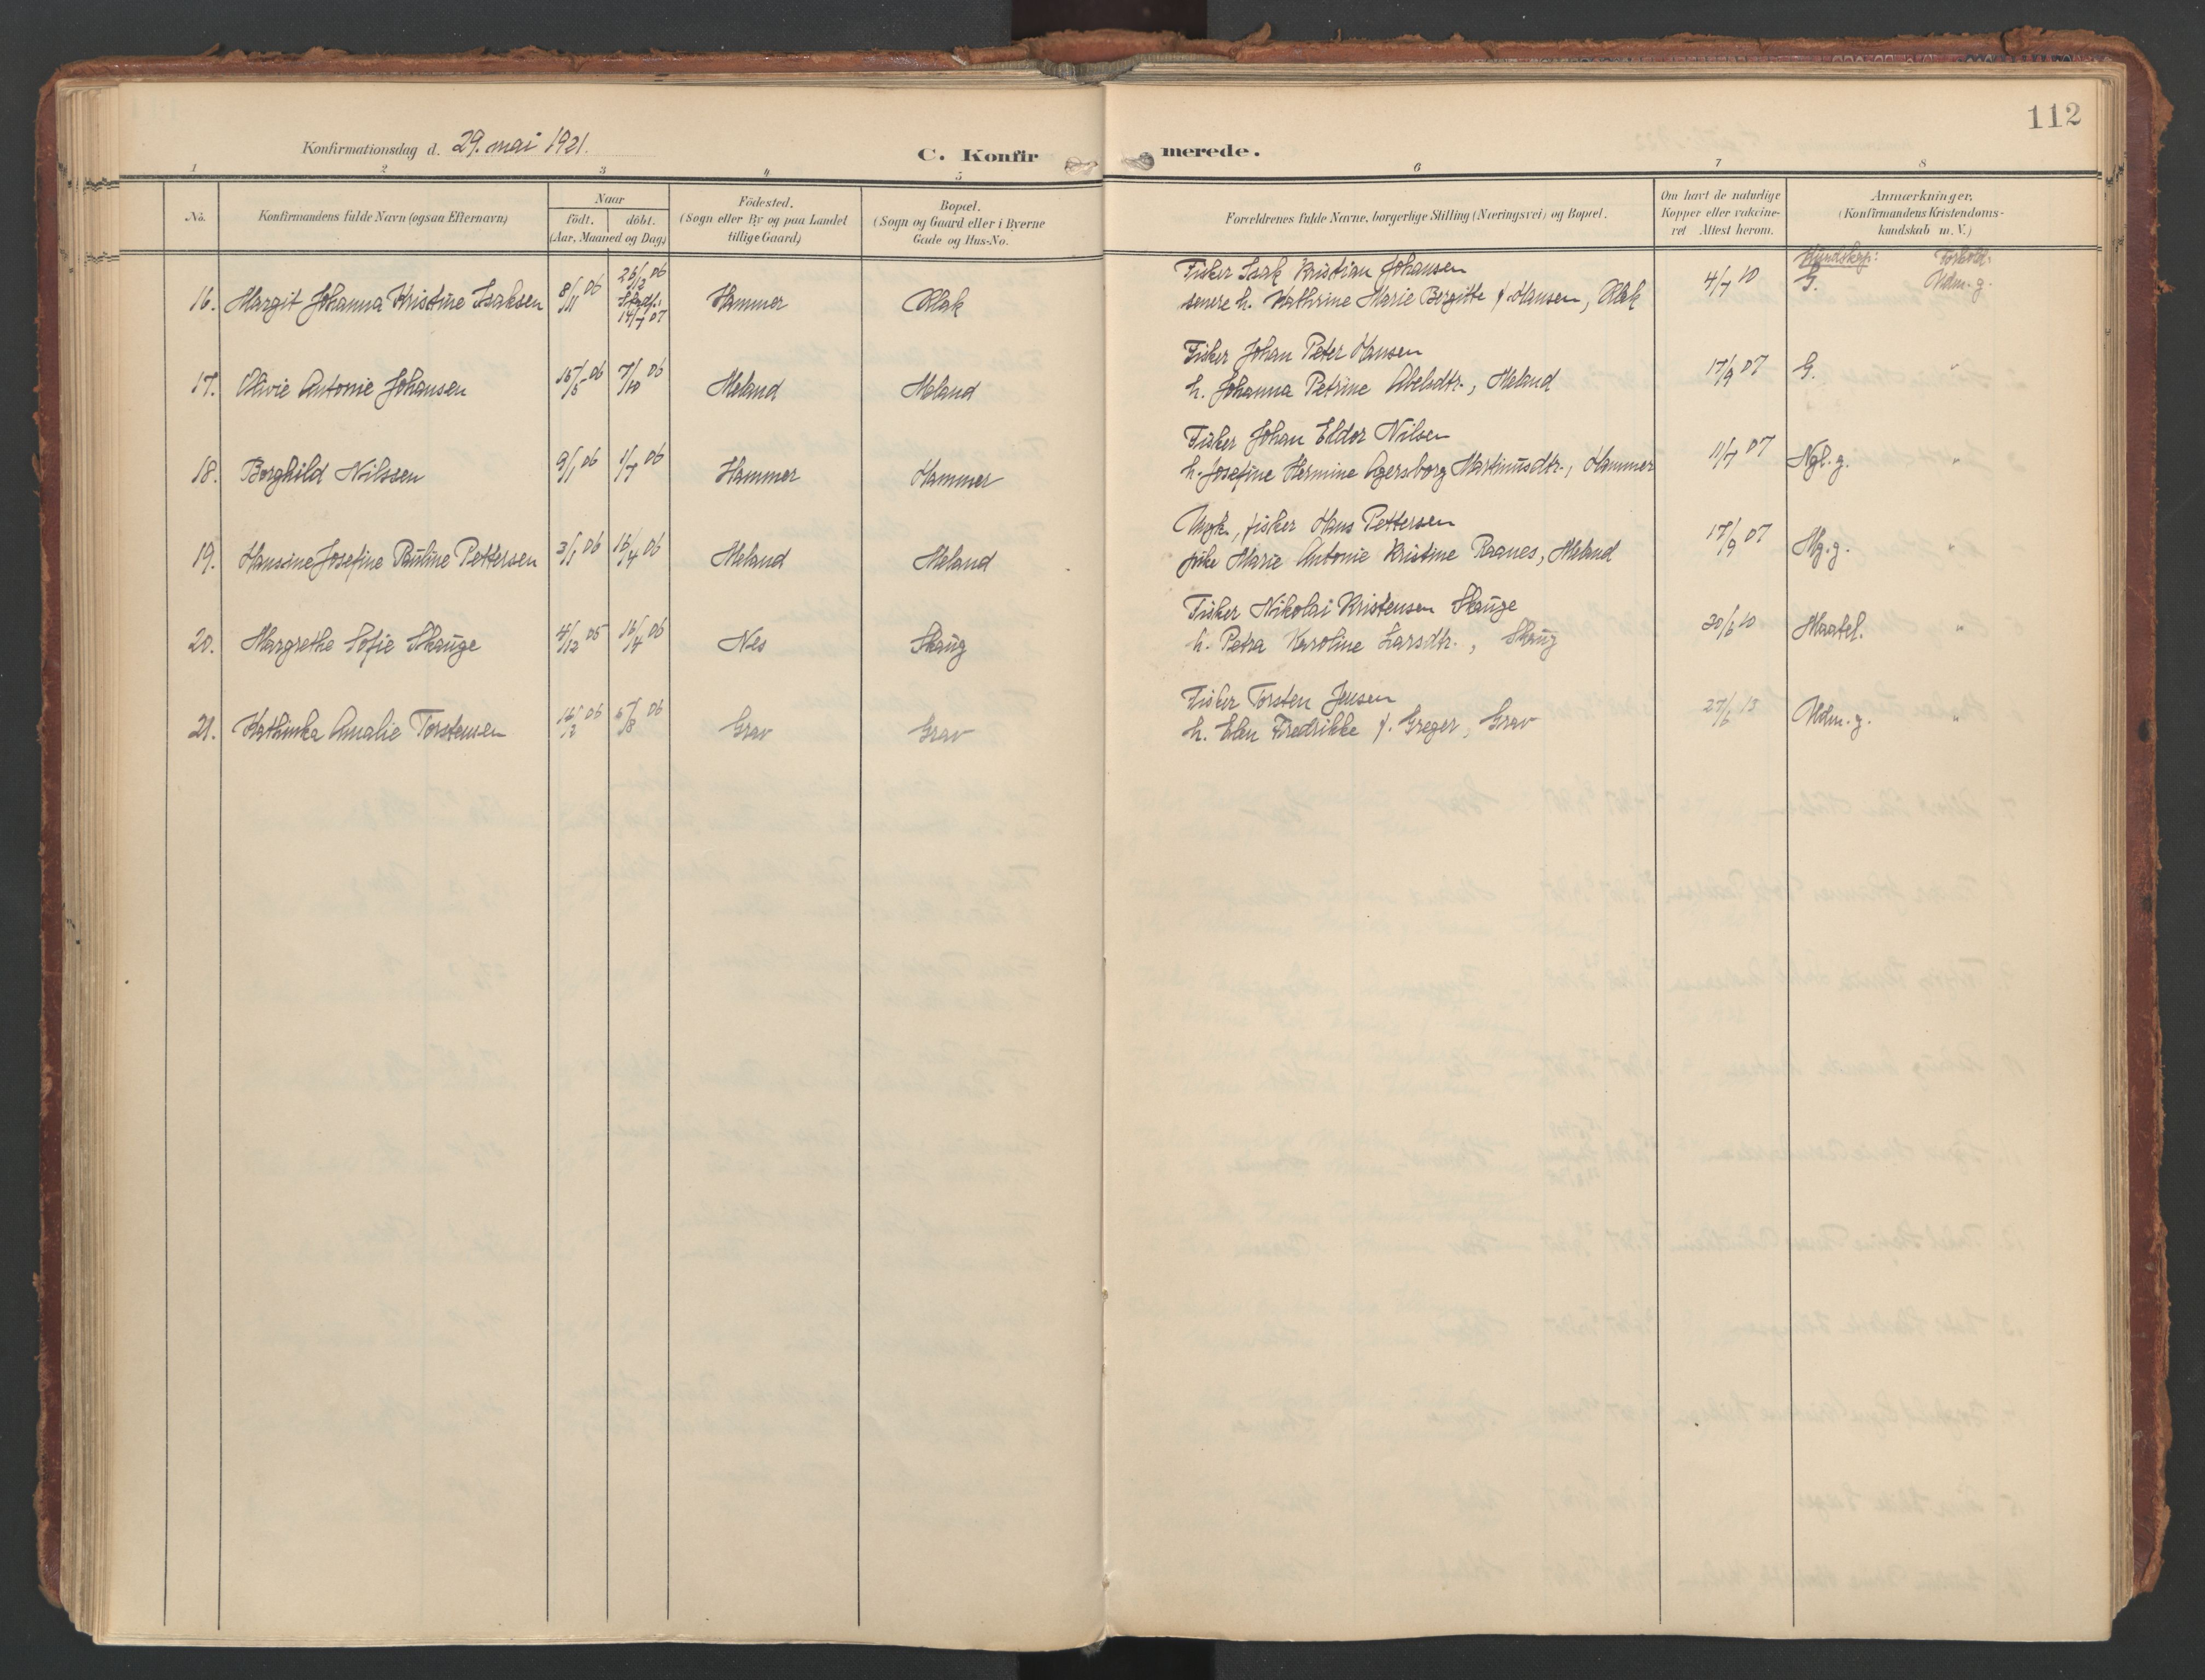 112
Konfirmationsdag d. 29. mai 1921.
C. Konfirmerede.
1 2 3 4 5 6 7 8
No.
Konfirmandens fulde Navn (ogsaa Efternavn)
Naar
födt. döbt.
(Aar, Maaned og Dag)
Födested.
(Sogn eller By og paa Landet
tillige Gaard)
Bopæl.
(Sogn og Gaard eller i Byerne
Gade og Hus-No.
Forældrenes fulde Navne, borgerlige Stilling (Næringsvei) og Bopæl.
Om havt de naturlige
Kopper eller vakcine-
ret Attest herom.
Anmærkninger.
(Konfirmandens Kristendoms-
kundskab m. V.)
Kundskap: Forhold:
16. Margit Johanna Kristine Isaksen 8/11 06 26/12 06 Stadf. 14/7 07 Hammer
Fisker Isak Kristian Johansen
senere h. Kathrine Marie Bergitte f. Hansen, 4/7 10 G. Udm. g.
17. Olivie Antonie Johansen 15/5 06 7/10 06 Meland Meland
Fisker Johan Peter Hansen
h. Johanna Petrine Abelsdtr., Meland 17/9 07 G. "
18. Borghild Nilssen 9/1 06 1/7 06 Hammer Hammer
Fisker Johan Eldor Nilsen
h. Josefine Hermine Agersborg Martinusdtr., Hammer 11/7 07 Ngl. g. "
19. Hansine Josefine Pauline Pettersen 3/1 06 16/4 06 Meland Meland
Ungk., fisker Hans Pettersen
pike Marie Antonie Kristine Raanes, Meland 17/9 07 Mg. g. "
20. Margrethe Sofie Skauge 4/12 05 16/4 06 Nes Skaug
Fisker Nikolai Kristensen Skauge
h. Petra Karoline Larsdtr., Skaug 30/6 10 Maatel. "
21. Kathinka Amalie Torstensen 16/2 06 5/8 06 Grav Grav
Fisker Torsten Jensen
h. Elen Fredrikke f. Greger, Grav 27/6 13 Udm. g. "